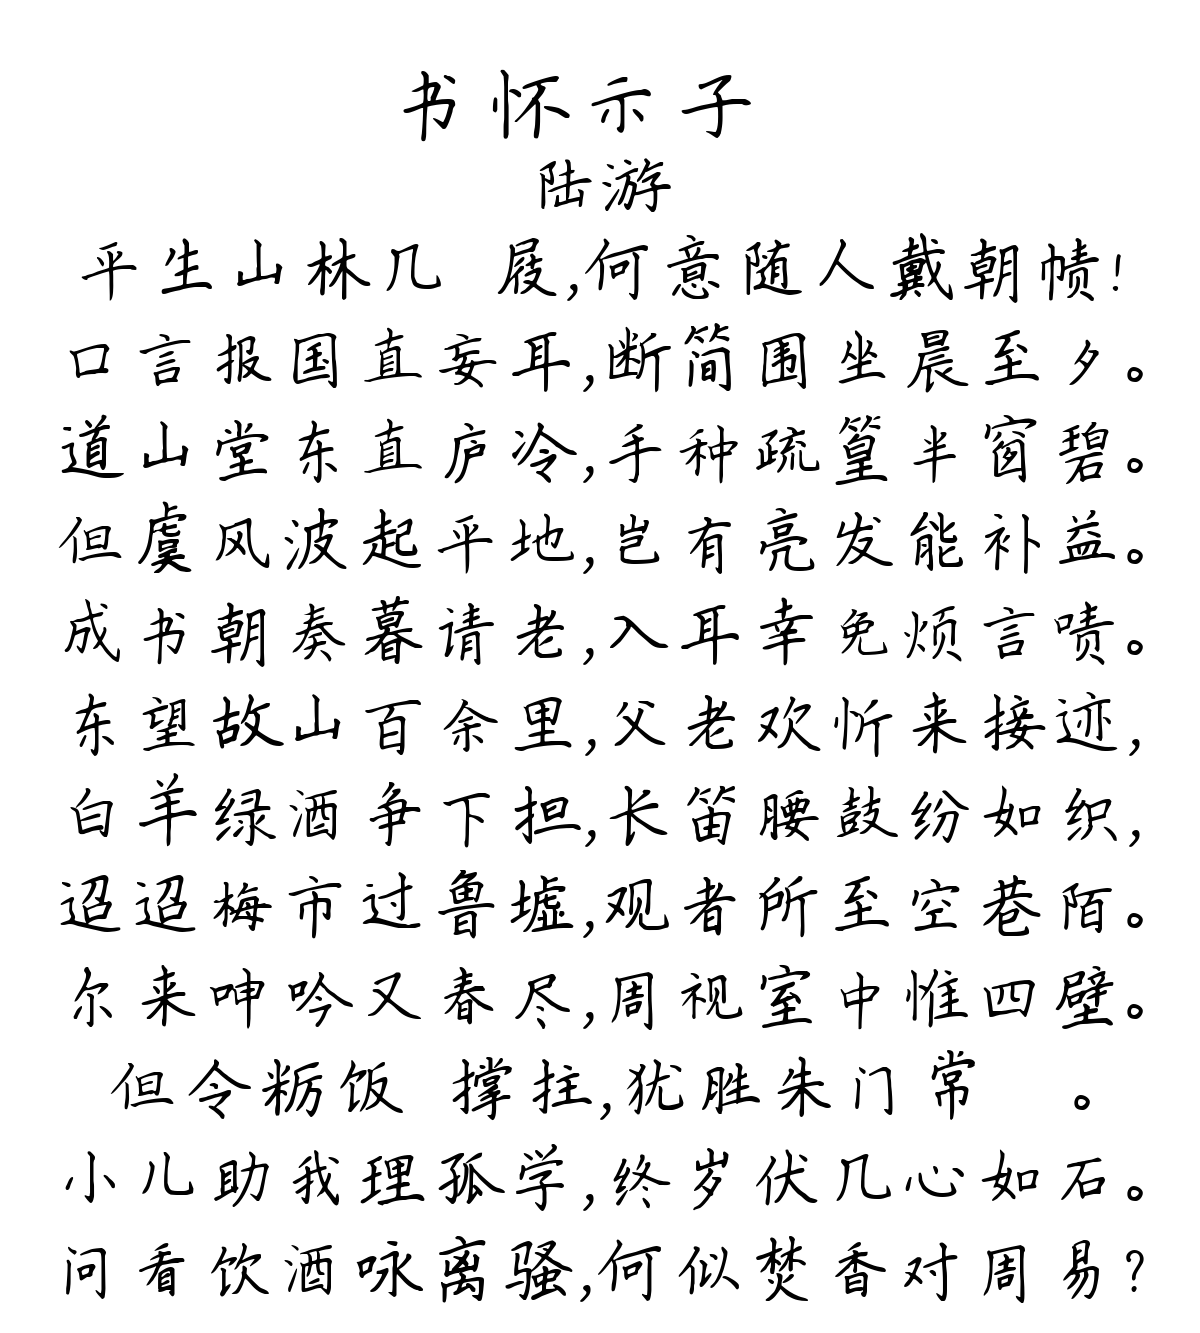 书怀示子
陆游
平生山林几 屐,何意随人戴朝帻!
口言报国直妄耳,断简围坐晨至夕。
道山堂东直庐冷,手种疏篁半窗碧。
但虞风波起平地,岂有亮发能补益。
成书朝奏暮请老,入耳幸免烦言啧。
东望故山百余里,父老欢忻来接迹,
白羊绿酒争下担,长笛腰鼓纷如织,
迢迢梅市过鲁墟,观者所至空巷陌。
尔来呻吟又春尽,周视室中惟四壁。
但令粝饭 撑拄,犹胜朱门常 。
小儿助我理孤学,终岁伏几心如石。
问看饮酒咏离骚,何似焚香对周易?